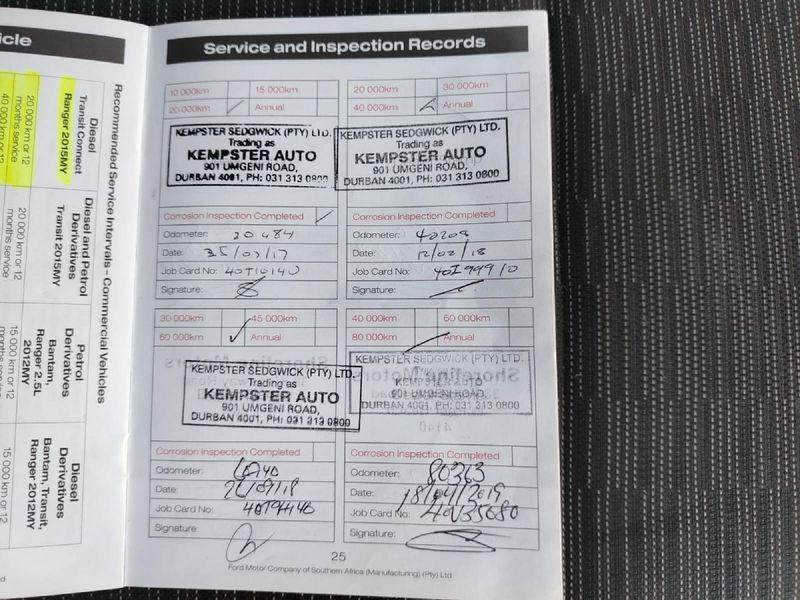 Service and Inspection Records
10 000km 15 000km
20 000km Annual
KEMPSTER SEDGWICK (PTY) LTD.
Trading as
KEMPSTER AUTO
901 UMGENI ROAD,
DURBAN 4001, PH: 031 313 0800
Corrosion Inspection Completed
Odometer: 20484
Date:
Job Card No:
Signature:
20 000km 30 000km
40 000km Annual
KEMPSTER SEDGWICK (PTY) LTD.
Trading as
KEMPSTER AUTO
901 UMGENI ROAD,
DURBAN 4001, PH: 031 313 0800
Corrosion Inspection Completed
Odometer: 40209
Date: 12/02/18
Job Card No:
Signature:
30 000km 45 000km
60 000km Annual
KEMPSTER SEDGWICK (PTY) LTD.
Trading as
KEMPSTER AUTO
901 UMGENI ROAD,
DURBAN 4001, PH: 031 313 0800
Corrosion Inspection Completed
Odometer:
Date:
Job Card No:
Signature:
40 000km 60 000km
80 000km Annual
KEMPSTER SEDGWICK (PTY) LTD.
KEMPSTER AUTO
901 UMGENI ROAD,
DURBAN 4001, PH: 031 313 0800
Corrosion Inspection Completed
Odometer: 80363
Date: 18/04/2019
Job Card No:
Signature:
25
Ford Motor Company of Southern Africa (Manufacturing) (Pty) Ltd
Recommended Service Intervals – Commercial Vehicles
Diesel
Transit Connect
Ranger 2015MY
20 000 km or 12
months service
40 000 km or 12
Diesel and Petrol
Derivatives
Transit 2015MY
20 000 km or 12
months service
Petrol
Derivatives
Bantam,
Ranger 2.5L
2012MY
15 000 km or 12
Diesel
Derivatives
Bantam, Transit,
Ranger 2012MY